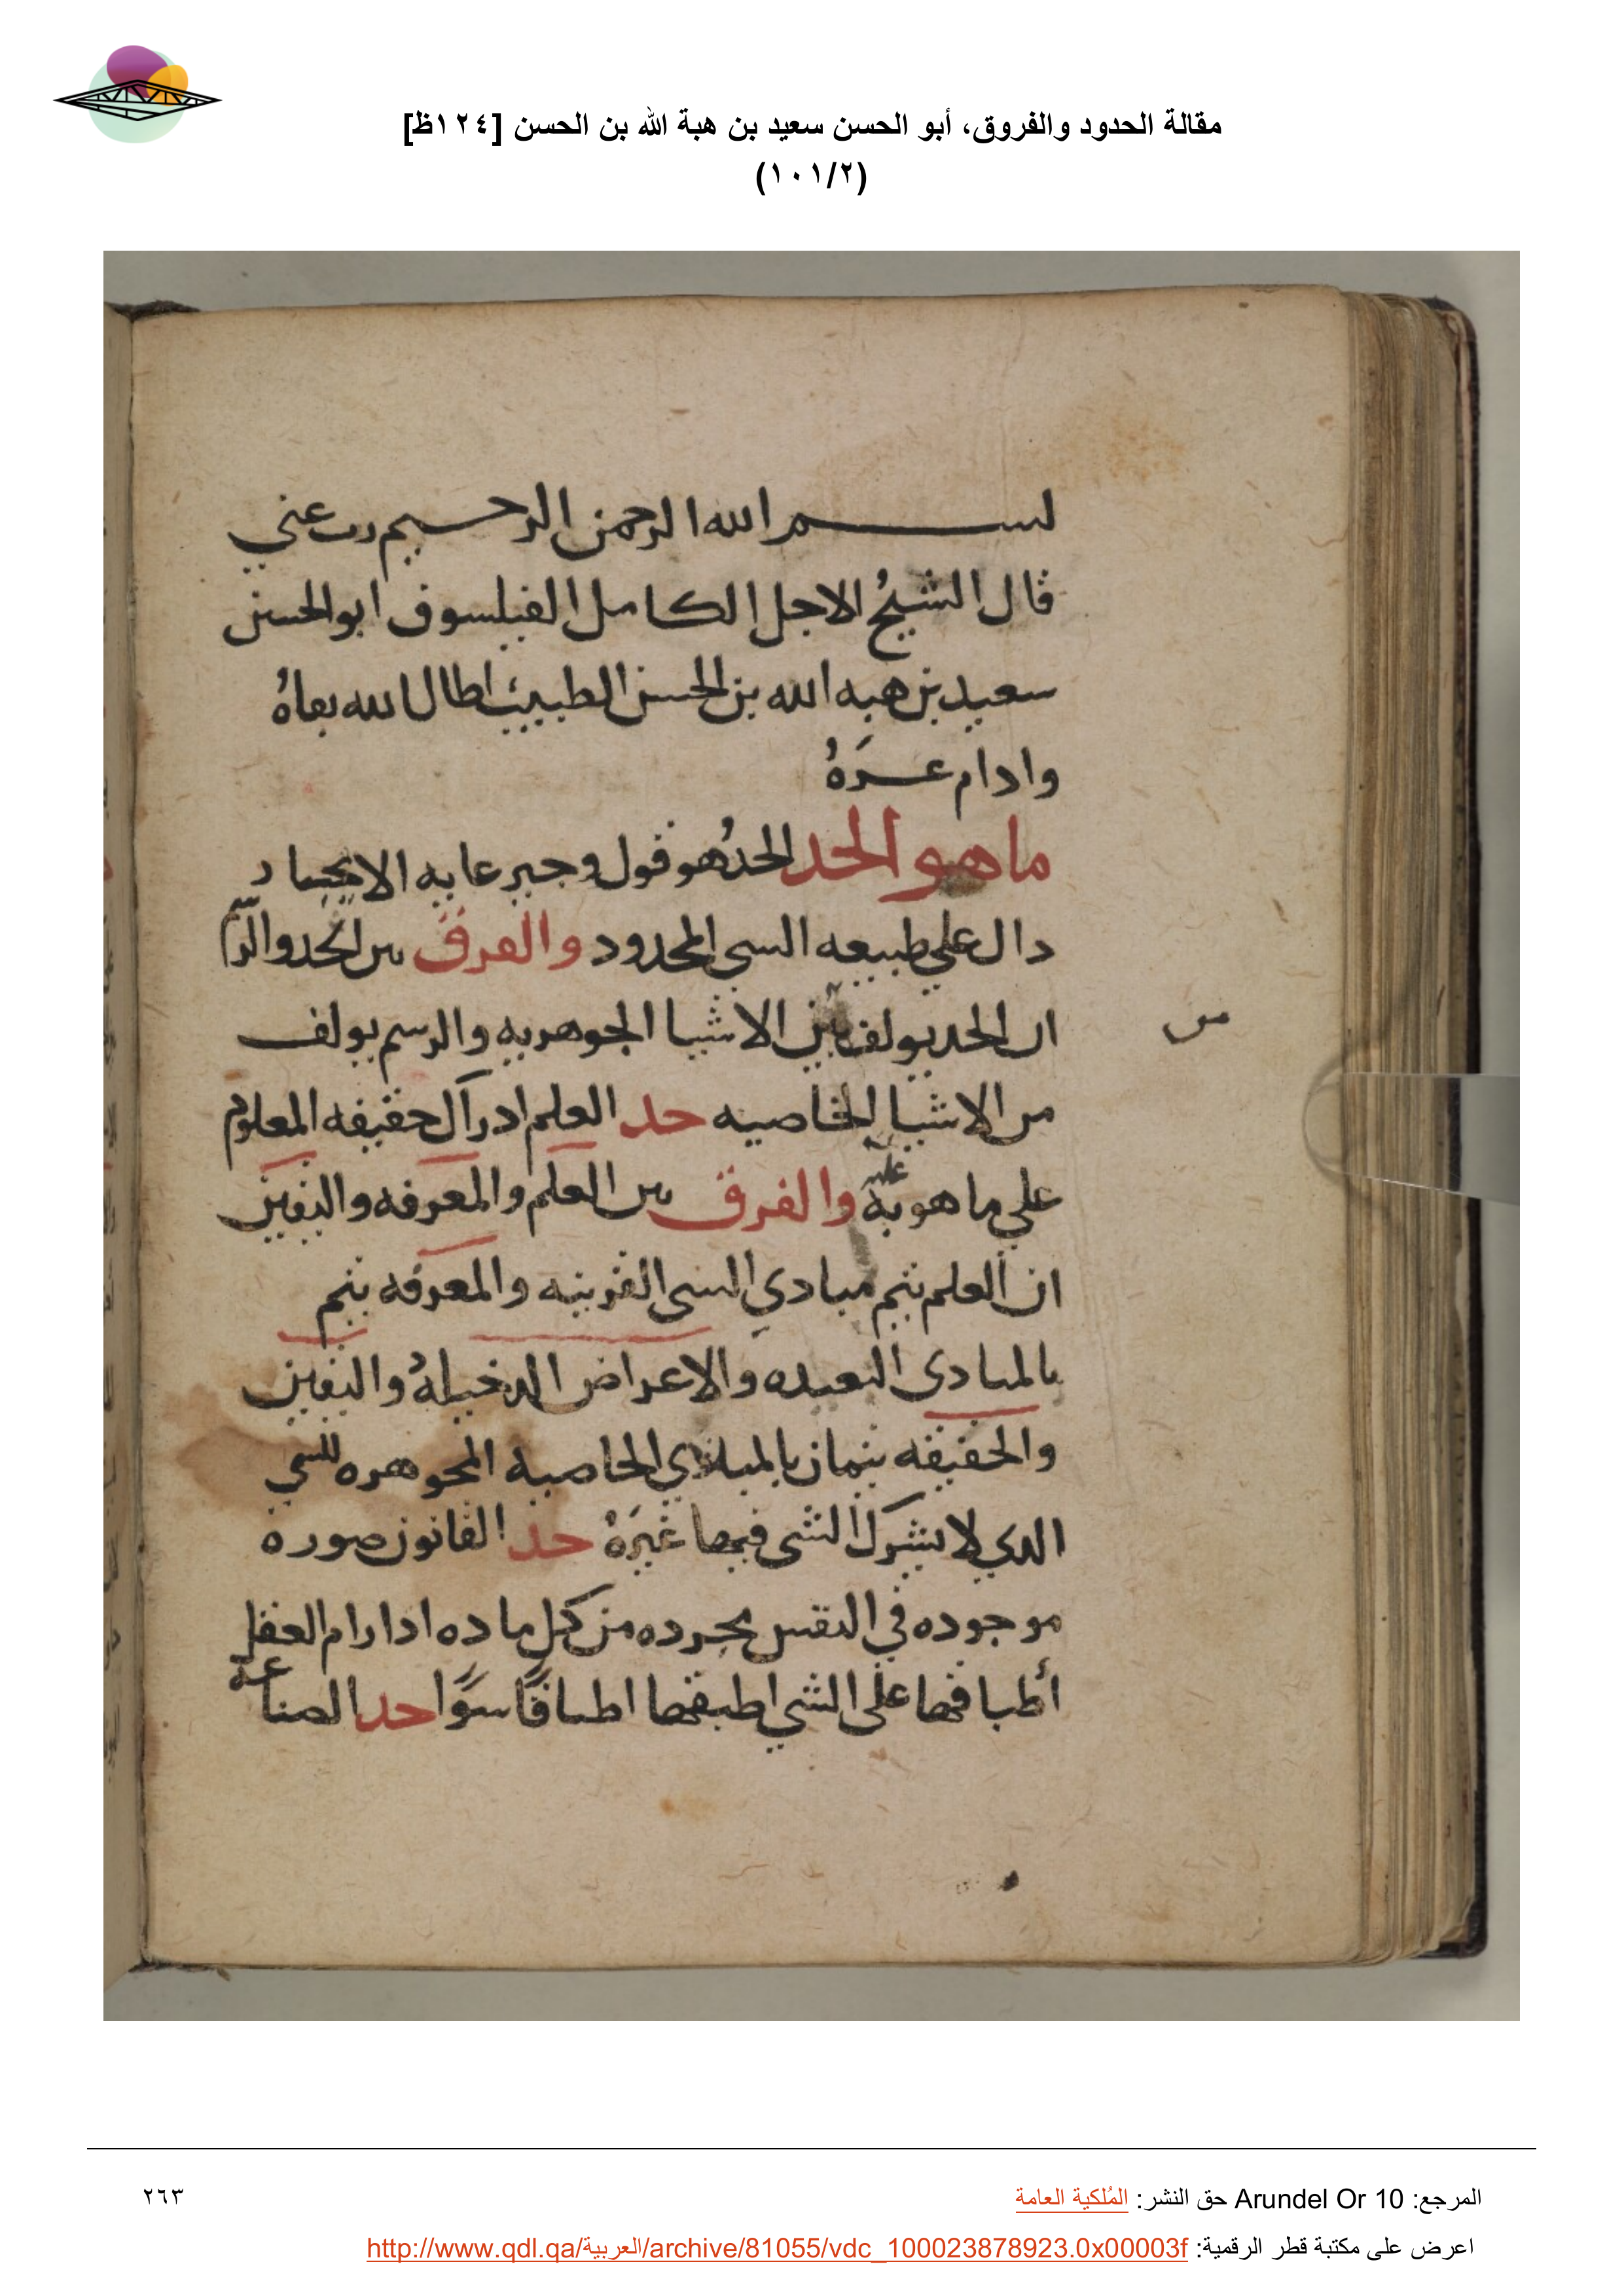 مقالة الحدود والفروق، أبو الحسن سعيد بن هبة الله بن الحسن [١٢٤ظ]
(١٠١/٢)
بسم الله الرحمن الرحيم رب عني
قال الشيخُ الاجل الكامل الفيلسوف ابو الحسن
سعيد بن هبه الله بن الحسن الطبيب اطال الله بقاهُ
وادام عـزَهُ
ما هو الحد الحدُ هو قول وجيز غايه الايجاز
دال علي طبيعه الشي المحدود والفرق بين الحد والرسم
ان الحد يولف من الاشيا الجوهريه والرسم يولف
من
من الاشيا الخاصيه حد العلم ادراك حقيقه المعلوم
علي ما هو به عليه والفرق بين العلم والمعرفه واليقين
ان العلم يتم مبادي الشي القريبه والمعرفه يتم
بالمبادي البعيده والاعراض الدخيلهُ واليقين
والحقيقه يتمان بالمبادي الخاصيه المجوهره للشي
الدي لا يشرك الشي فيها غيَرهُ حد القانون صورة
موجوده في النفس مجرده من كل ماده ادا رام العقل
أطباقها على الشي اطبقها اطباقًا سوًا حد الصناعة
المرجع: Arundel Or 10 حق النشر: المُلكية العامة
٢٦٣
اعرض على مكتبة قطر الرقمية: http://www.qdl.qa/العربية/archive/81055/vdc_100023878923.0x00003f